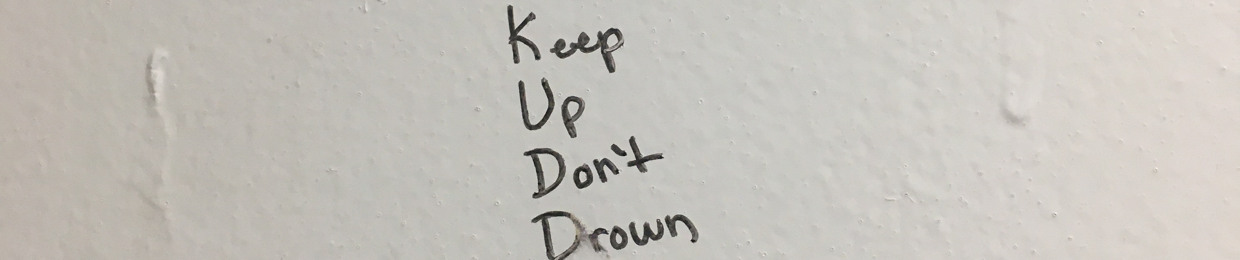 Keep
Up
Don't
Drown